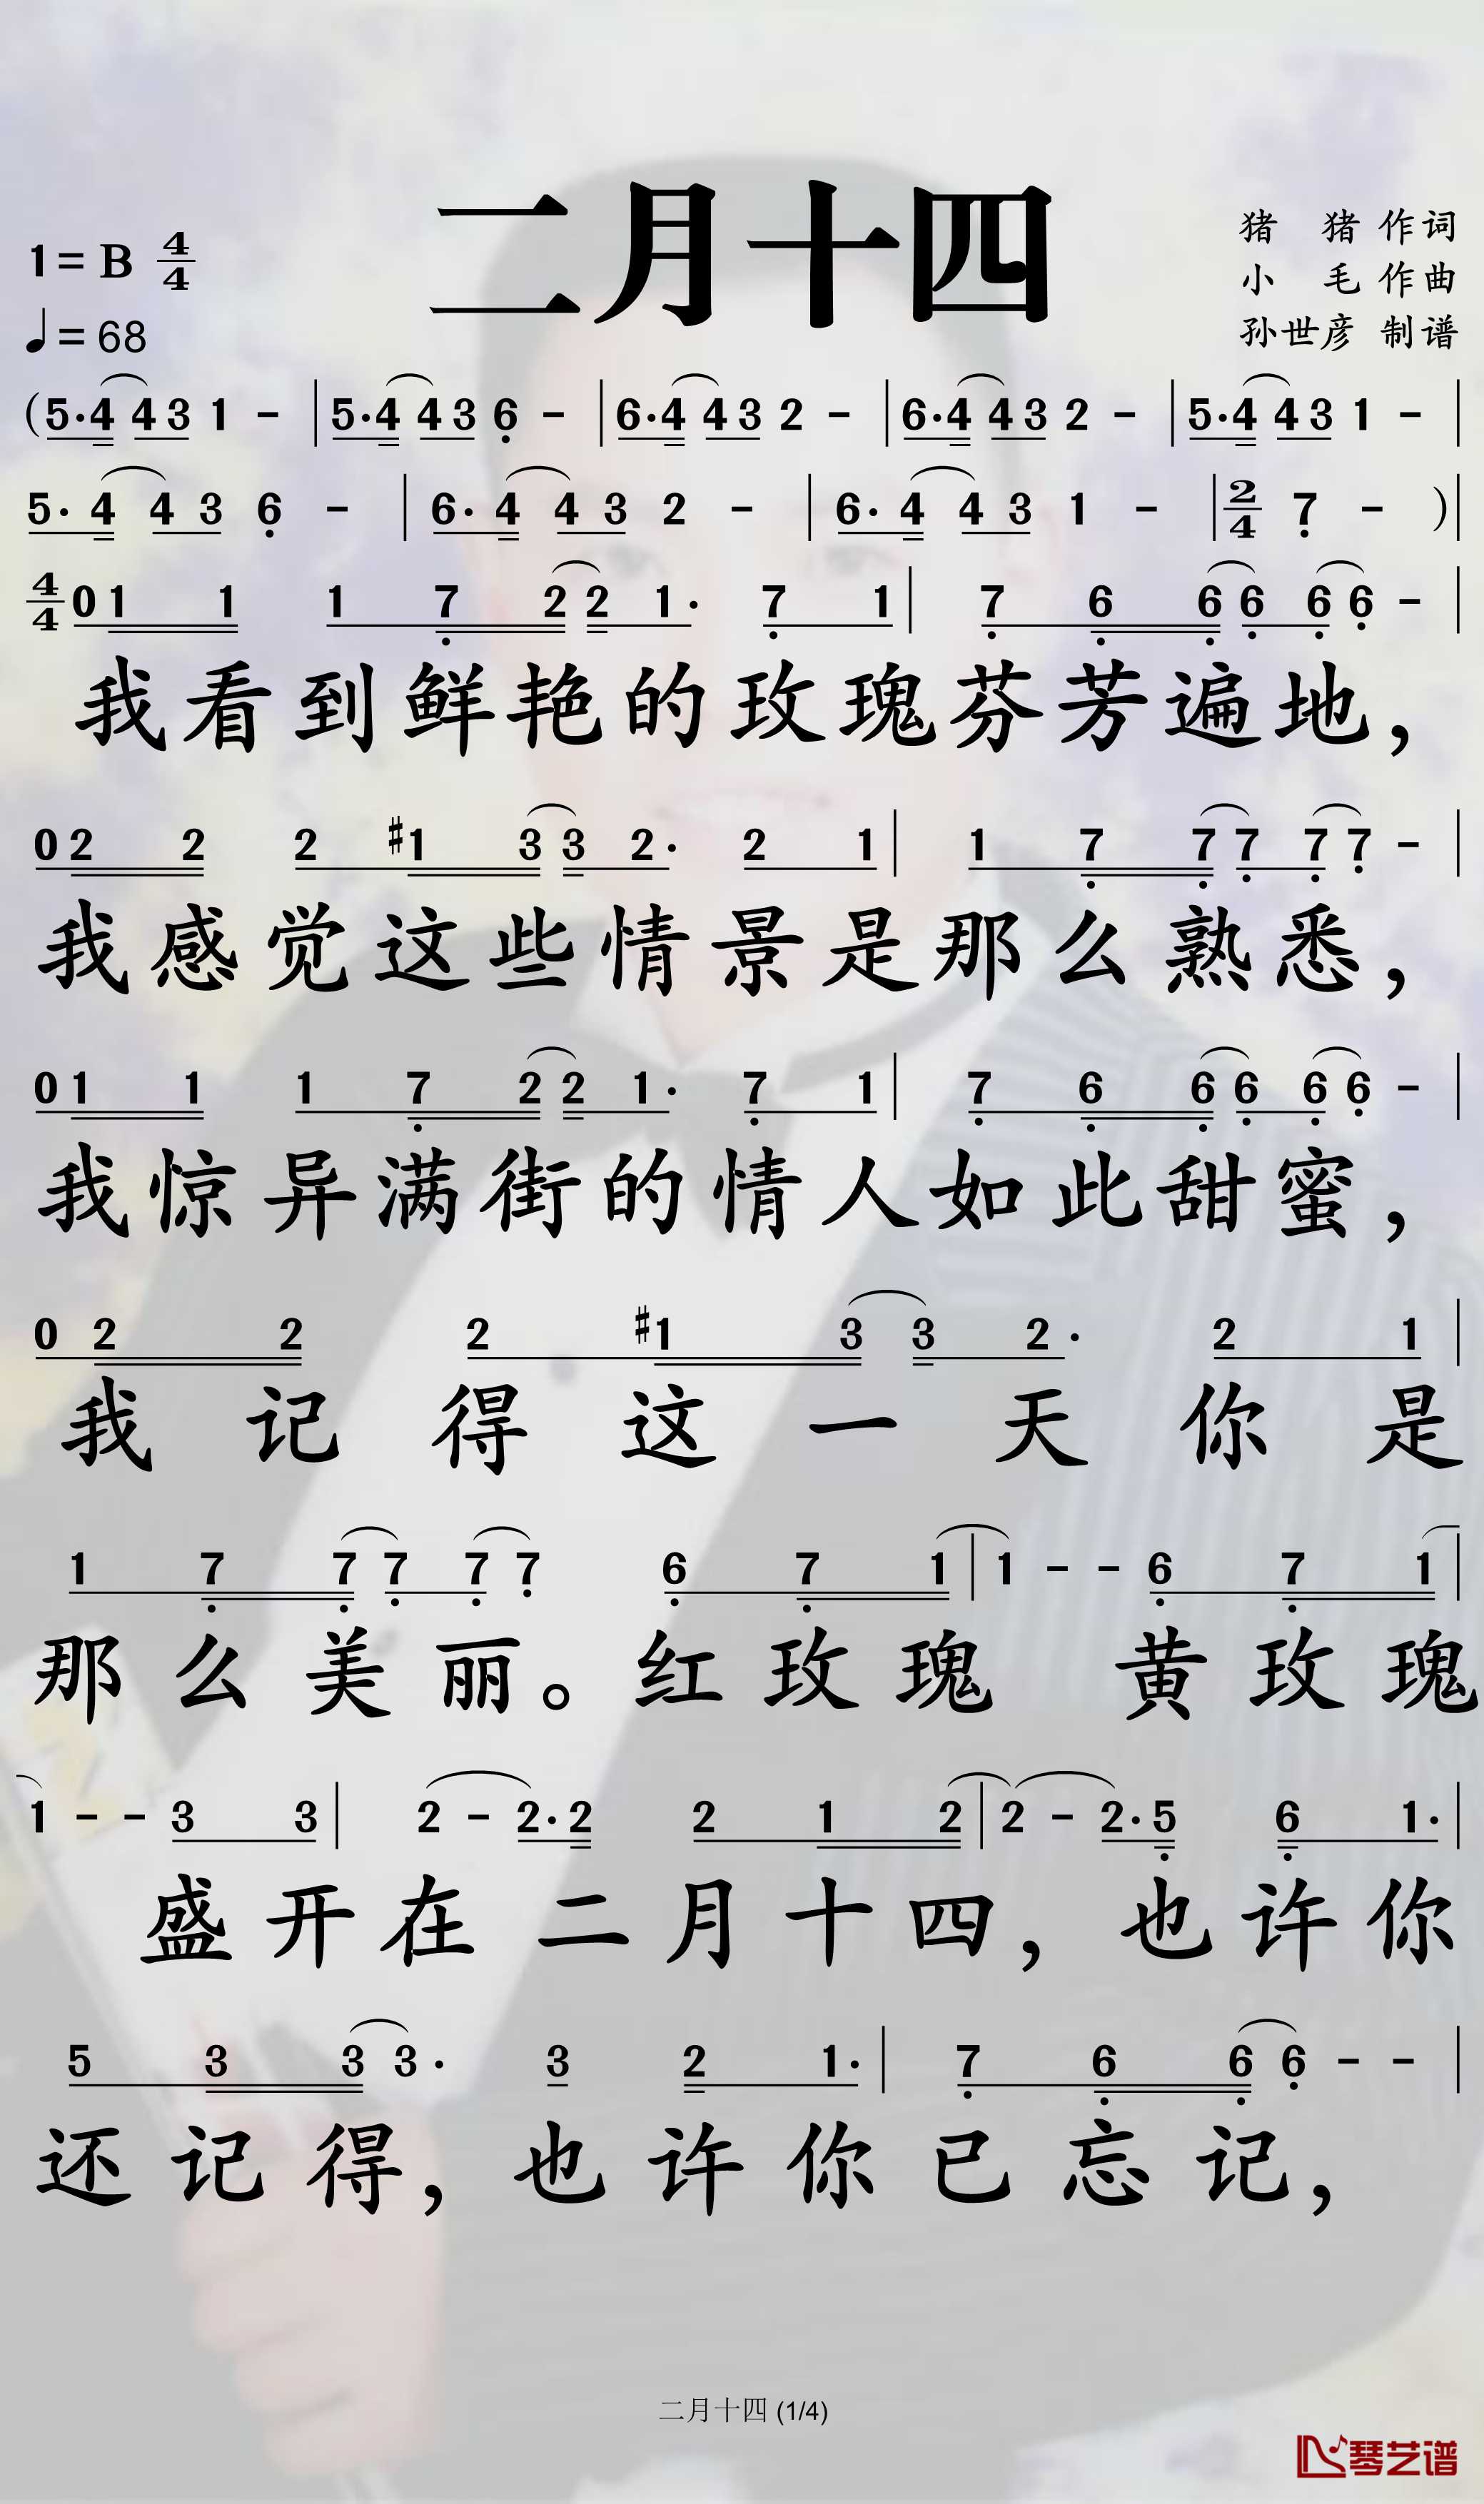 二月十四
1=B 4/4
♩=68
猪 猪 作词
小 毛 作曲
孙世彦 制谱
(5·4 43 1 - | 5·4 43 6 - | 6·4 43 2 - | 6·4 43 2 - | 5·4 43 1 - |
5·4 43 6 - | 6·4 43 2 - | 6·4 43 1 - | 2/4 7 - )|
4/4 01 1 1 7 22 1· 7 1 | 7 6 66 66 - |
我看到鲜艳的玫瑰芬芳遍地，
02 2 2 #1 33 2· 2 1 | 1 7 77 77 - |
我感觉这些情景是那么熟悉，
01 1 1 7 22 1· 7 1 | 7 6 66 66 - |
我惊异满街的情人如此甜蜜，
0 2 2 2 #1 3 3 2· 2 1 |
我记得这一天你是
1 7 77 77 6 7 1 | 1 - - 6 7 1 |
那么美丽。红玫瑰 黄玫瑰
1 - - 3 3 | 2 - 2·2 2 1 2 | 2 - 2·5 6 1· |
盛开在二月十四，也许你
5 3 33· 3 2 1· | 7 6 66 - - |
还记得，也许你已忘记，
二月十四 (1/4)
琴艺谱